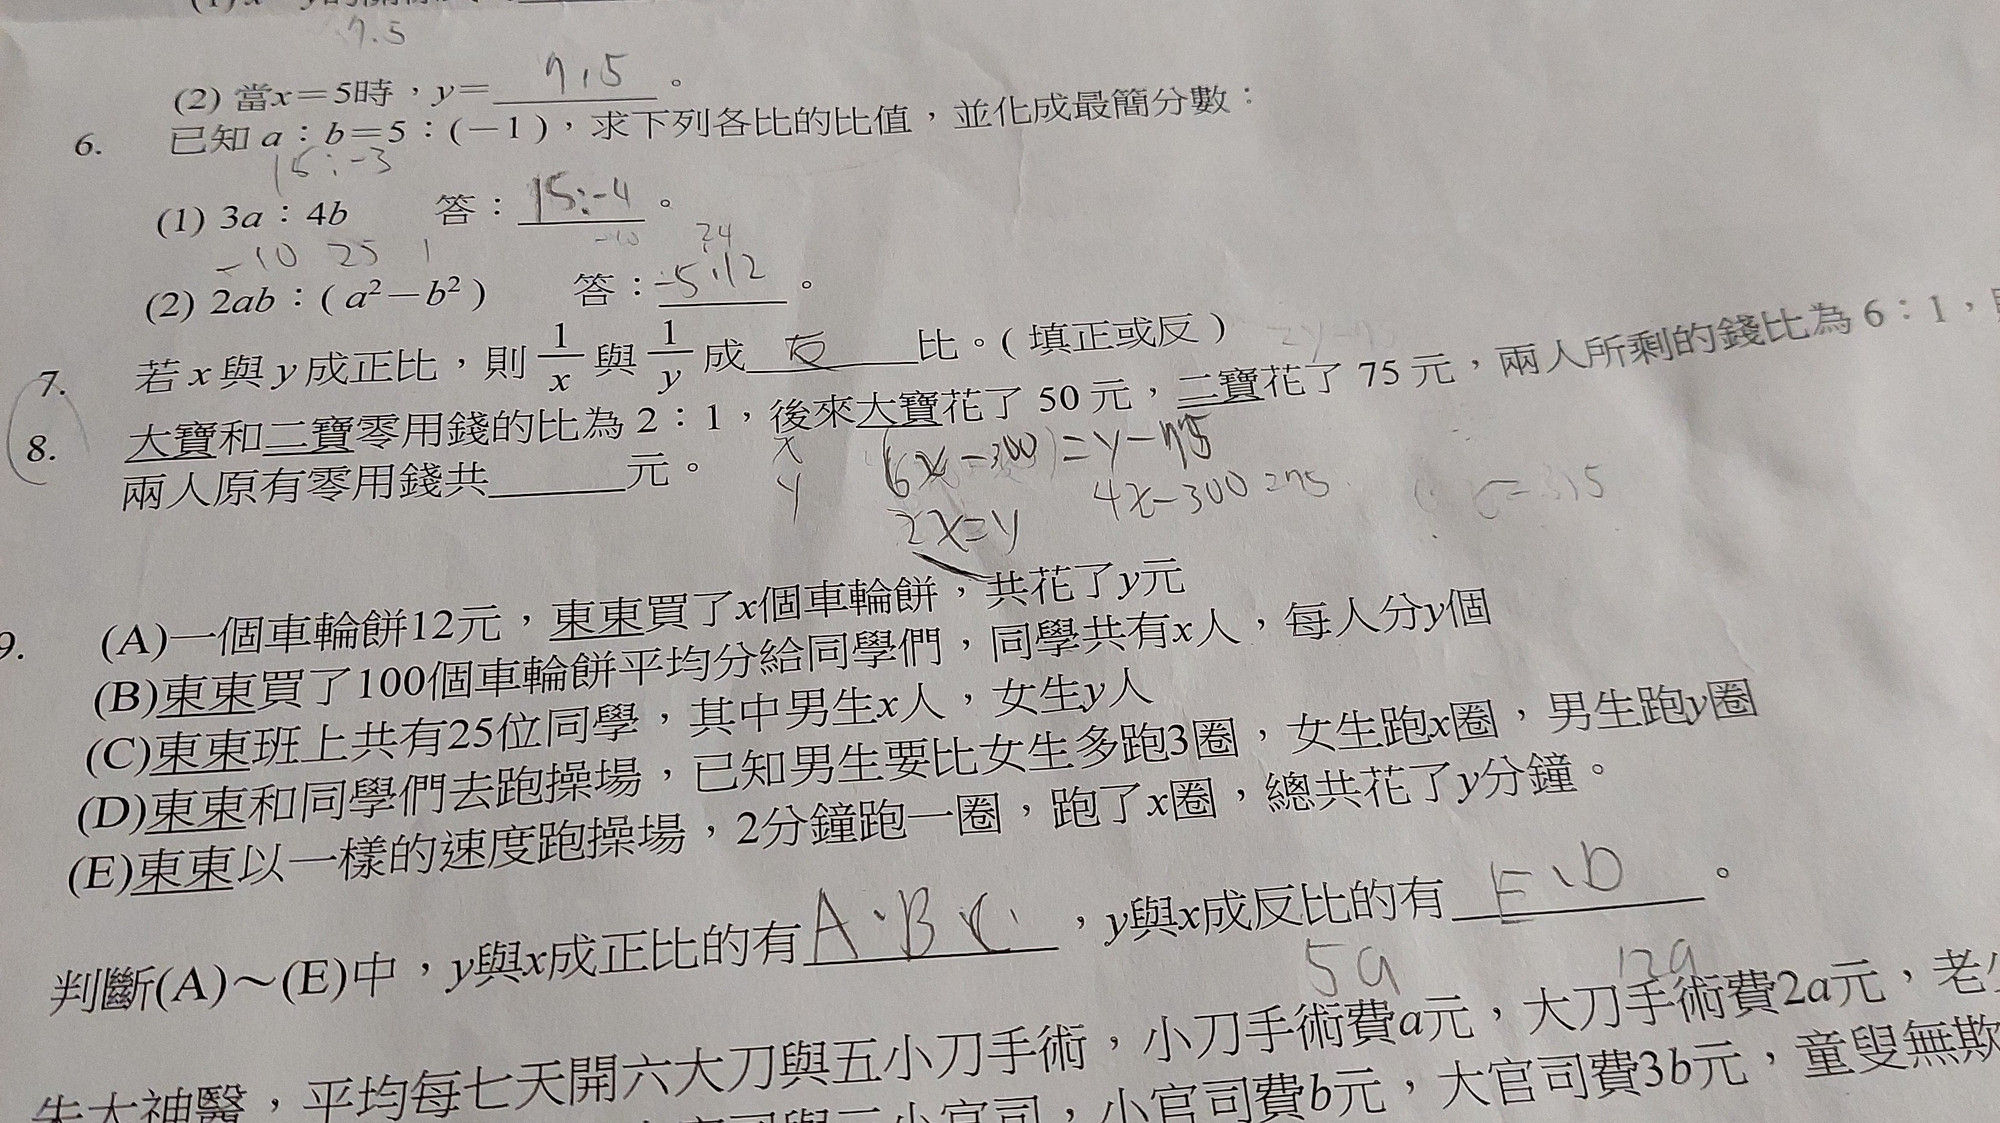 7.5
(2) 當x=5時，y= 7.5 。
6. 已知 a：b=5：(-1)，求下列各比的比值，並化成最簡分數：
15：-3
(1) 3a：4b 答： 15：-4 。
-10 25 1 -10 24
(2) 2ab：( a²-b² ) 答： -5：12 。
7. 若 x 與 y 成正比，則 1/x 與 1/y 成 反 比。( 填正或反 )
8. 大寶和二寶零用錢的比為 2：1，後來大寶花了 50 元，二寶花了 75 元，兩人所剩的錢比為 6：1，
兩人原有零用錢共______元。
x (6x-300)=y-75
y 2x=y 4x-300=75
9. (A)一個車輪餅12元，東東買了x個車輪餅，共花了y元
(B)東東買了100個車輪餅平均分給同學們，同學共有x人，每人分y個
(C)東東班上共有25位同學，其中男生x人，女生y人
(D)東東和同學們去跑操場，已知男生要比女生多跑3圈，女生跑x圈，男生跑y圈
(E)東東以一樣的速度跑操場，2分鐘跑一圈，跑了x圈，總共花了y分鐘。
判斷(A)～(E)中，y與x成正比的有 A、B、C ，y與x成反比的有 E、D 。
5a 12a
大神醫，平均每七天開六大刀與五小刀手術，小刀手術費a元，大刀手術費2a元，老
小官司，小官司費b元，大官司費3b元，童叟無欺